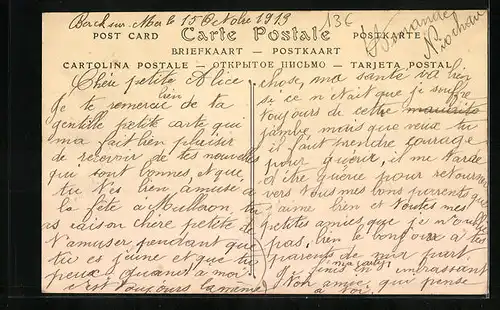 Berck sur Mer le 15 Octobre 1913
136
POST CARD Carte Postale POSTKARTE
BRIEFKAART — POSTKAART
CARTOLINA POSTALE — ОТКРЫТОЕ ПИСЬМО — TARJETA POSTAL
Chère petite Alice
je te remercie bien de ta
gentille petite carte qui
m'a fait bien plaisir
de recevoir de tes nouvelles
qui sont bonnes, et que
tu t'es bien amusé a
la fête à tu
as raison chère petite de
t'amuser pendant que
tu es jeune et que tu
peux. Quand à moi
c'est toujours la même
chose, ma santé va bien
si ce n'était que je souffre
toujours de cette maudite
jambe mais que veux tu
il faut prendre courage
pour guérir, il me tarde
d'être guérie pour retourner
vers tous mes bons parents que
j'aime bien et toutes mes
petites amies que je n'oublie
pas, bien le bonjour à tes
parents de ma part.
Je finis ma carte en t'embrassant
Ton amie qui pense
à toi.